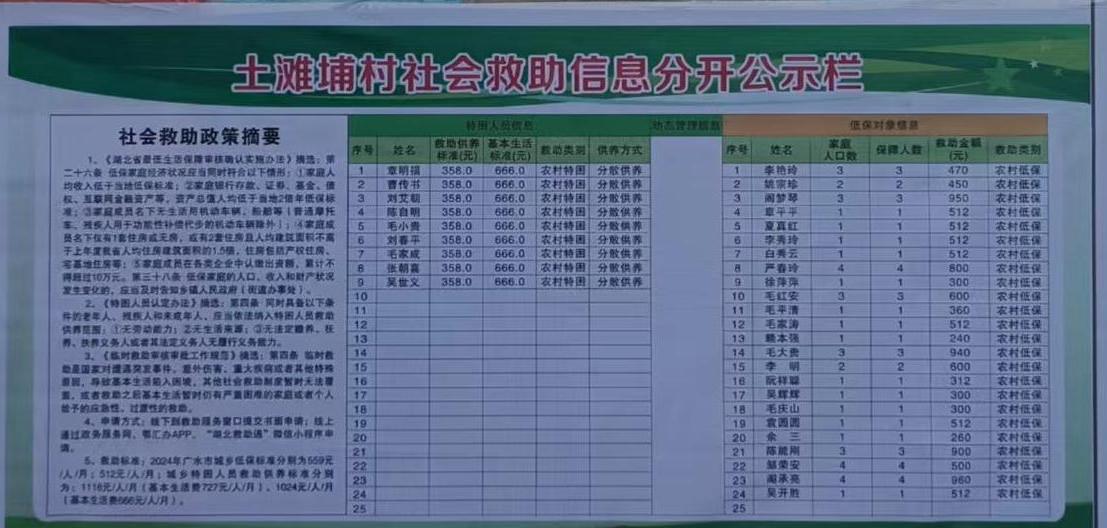 土滩埔村社会救助信息分开公示栏
社会救助政策摘要
1、《湖北省最低生活保障审核确认实施办法》摘选：第
二十六条 低保家庭经济状况应当同时符合以下情形：①家庭人
均收入低于当地低保标准；②家庭银行存款、证券、基金、债
权、互联网金融资产等，资产总值人均低于当地2倍年低保标
准；③家庭成员名下无生活用机动车辆、船舶等（普通摩托
车、残疾人用于功能性补偿代步的机动车辆除外）；④家庭成
员名下仅有1套住房或无房，或有2套住房且人均建筑面积不高
于上年度我省人均住房建筑面积的1.5倍，住房包括产权住房、
宅基地住房等；⑤家庭成员在各类企业中认缴出资额，累计不
得超过10万元。第三十八条 低保家庭的人口、收入和财产状况
发生变化的，应当及时告知乡镇人民政府（街道办事处）。
2、《特困人员认定办法》摘选：第四条 同时具备以下条
件的老年人、残疾人和未成年人，应当依法纳入特困人员救助
供养范围：①无劳动能力；②无生活来源；③无法定赡养、抚
养、扶养义务人或者其法定义务人无履行义务能力。
3、《临时救助审核审批工作规范》摘选：第四条 临时救
助是国家对遭遇突发事件、意外伤害、重大疾病或者其他特殊
原因，导致基本生活陷入困境，其他社会救助制度暂时无法覆
盖，或者救助之后基本生活暂时仍有严重困难的家庭或者个人
给予的应急性、过渡性的救助。
4、申请方式：线下到救助服务窗口提交书面申请；线上
通过政务服务网、鄂汇办APP、“湖北救助通”微信小程序申
请。
5、救助标准：2024年广水市城乡低保标准分别为559元
/人/月；512元/人/月；城乡特困人员救助供养标准分别
为：1118元/人/月（基本生活费727元/人/月）、1024元/人/月
（基本生活费666元/人/月）。
特困人员信息
序号 姓名 救助供养标准(元) 基本生活标准(元) 救助类别 供养方式
1 章明福 358.0 666.0 农村特困 分散供养
2 曹传书 358.0 666.0 农村特困 分散供养
3 刘艾朝 358.0 666.0 农村特困 分散供养
4 陈自明 358.0 666.0 农村特困 分散供养
5 毛小贵 358.0 666.0 农村特困 分散供养
6 刘春平 358.0 666.0 农村特困 分散供养
7 毛家成 358.0 666.0 农村特困 分散供养
8 张朝喜 358.0 666.0 农村特困 分散供养
9 吴世义 358.0 666.0 农村特困 分散供养
10
11
12
13
14
15
16
17
18
19
20
21
22
23
24
25
动态管理信息
低保对象信息
序号 姓名 家庭人口数 保障人数 救助金额(元) 救助类别
1 李艳玲 3 3 470 农村低保
2 姚宗珍 2 2 450 农村低保
3 阁梦琴 3 3 950 农村低保
4 章平平 1 1 512 农村低保
5 夏真红 1 1 512 农村低保
6 李秀玲 1 1 512 农村低保
7 白秀云 1 1 512 农村低保
8 严春玲 4 4 800 农村低保
9 徐萍萍 1 1 300 农村低保
10 毛红安 3 3 600 农村低保
11 毛平清 1 1 360 农村低保
12 毛家涛 1 1 512 农村低保
13 赖本强 1 1 240 农村低保
14 毛大贵 3 3 940 农村低保
15 李 明 2 2 600 农村低保
16 阮祥聪 1 1 312 农村低保
17 吴辉辉 1 1 300 农村低保
18 毛庆山 1 1 300 农村低保
19 袁圆圆 1 1 512 农村低保
20 余 三 1 1 260 农村低保
21 陈能刚 3 3 900 农村低保
22 邹荣安 4 4 500 农村低保
23 阁承亮 4 4 960 农村低保
24 吴开胜 1 1 512 农村低保
25